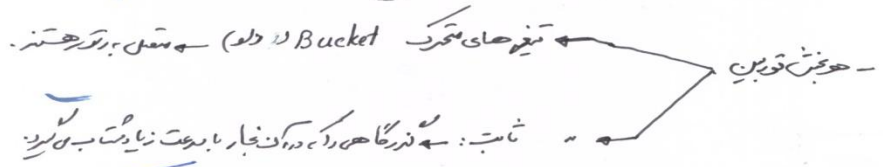 - هر بخش توربین
تیغه های متحرک Bucket (دلو) → متصل به رتور هستند.
" ثابت: → گذرگاهی که در آن بخار با سرعت زیاد شتاب می گیرد.